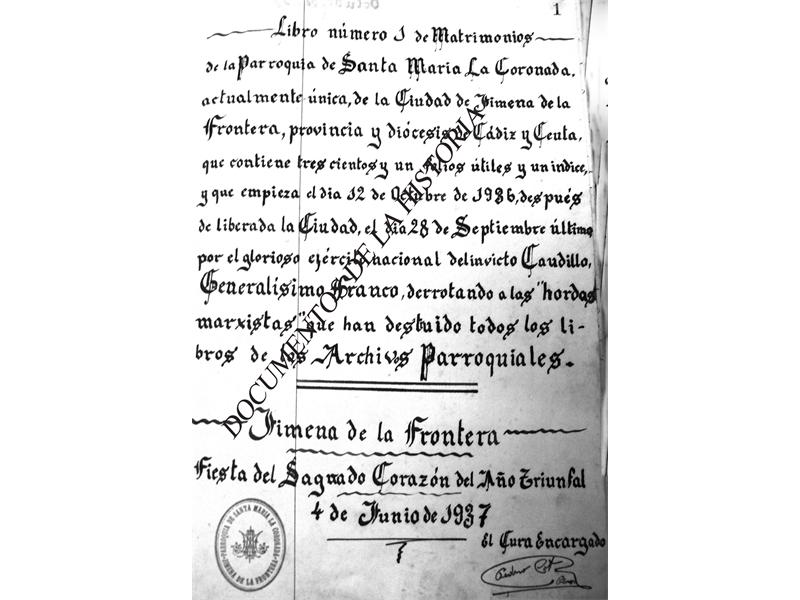 1
Libro número 1 de Matrimonios
de la Parroquia de Santa Maria La Coronada,
actualmente única, de la Ciudad de Jimena de la
Frontera, provincia y diócesis de Cádiz y Ceuta,
que contiene tres cientos y un folios útiles y un indice,
y que empieza el dia 12 de Octubre de 1936, después
de liberada la Ciudad, el dia 28 de Septiembre último
por el glorioso ejército nacional del invicto Caudillo,
Generalísimo Franco, derrotando a las "hordas
marxistas" que han destuido todos los li-
bros de los Archivs Parroquiales.
DOCUMENTOS DE LA HISTORIA
Jimena de la Frontera
Fiesta del Sagrado Corazón del Año Triunfal
4 de Junio de 1937
El Cura Encargado
PARROQUIA DE SANTA MARIA LA CORONADA
JIMENA DE LA FRONTERA